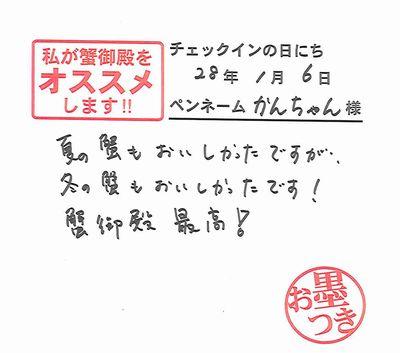 私が蟹御殿を
オススメ
します!!
チェックインの日にち
28年 1月 6日
ペンネーム かんちゃん 様
夏の蟹もおいしかったですが、
冬の蟹もおいしかったです!
蟹御殿 最高!
お墨
つき